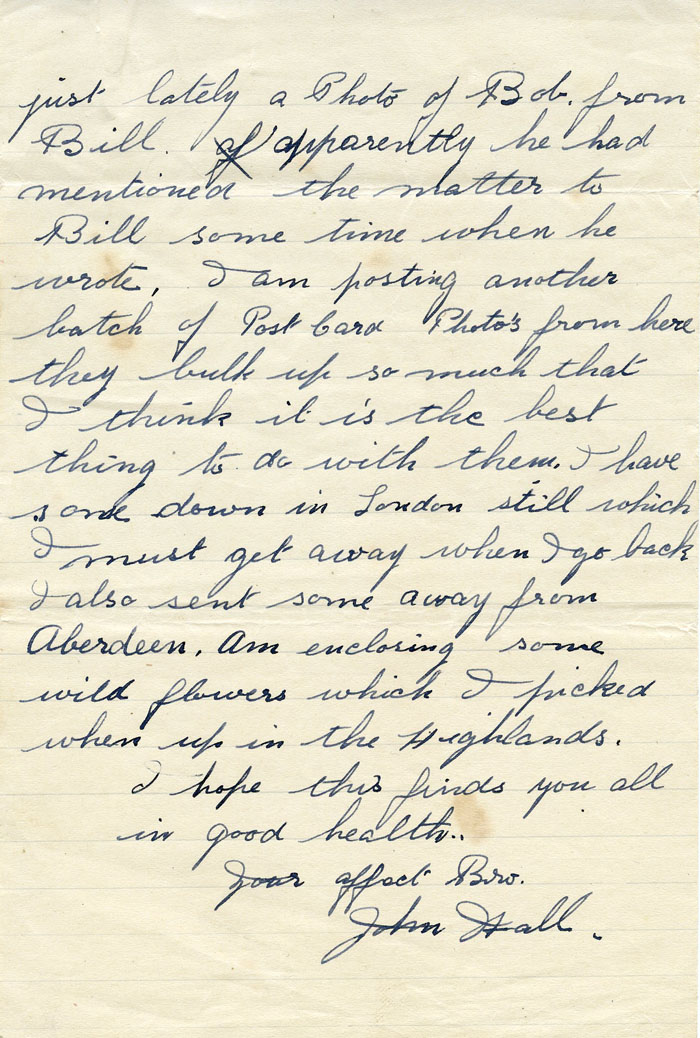 just lately a Photo of Bob. from
Bill. of apparently he had
mentioned the matter to
Bill some time when he
wrote, I am posting another
batch of Post Card Photo's from here
they bulk up so much that
I think it is the best
thing to do with them. I have
some down in London still which
I must get away when I go back
I also sent some away from
Aberdeen. Am enclosing some
wild flowers which I picked
when up in the Highlands.
I hope this finds you all
in good health..
Your affect Bro.
John Hall.